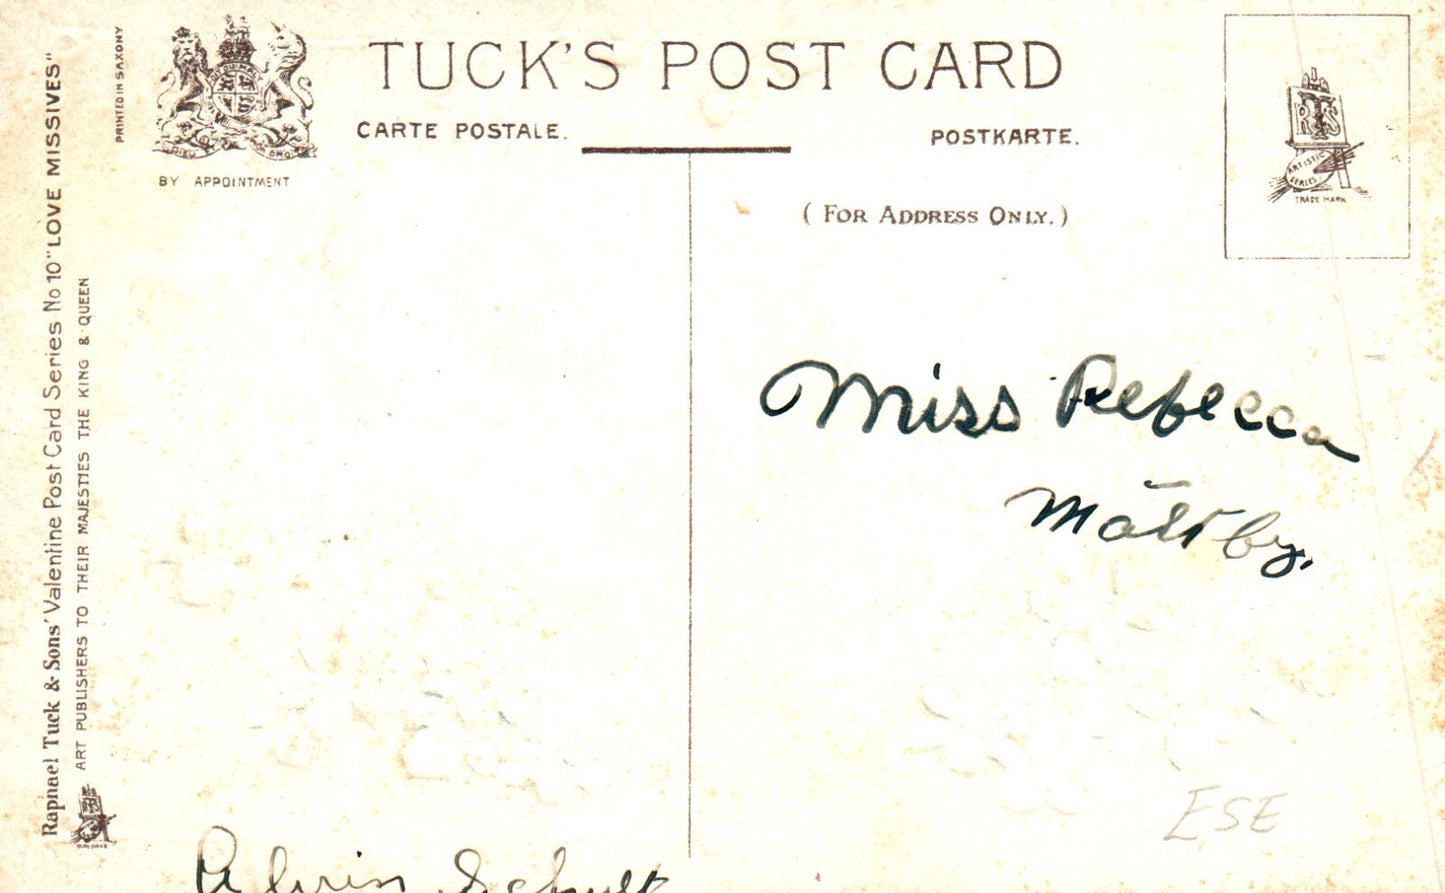 TUCK'S POST CARD
CARTE POSTALE.
POSTKARTE.
(FOR ADDRESS ONLY.)
BY APPOINTMENT
PRINTED IN SAXONY
Raphael Tuck & Sons' Valentine Post Card Series No 10 "LOVE MISSIVES"
ART PUBLISHERS TO THEIR MAJESTIES THE KING & QUEEN
DIEU
DROIT
RTS
ARTISTIC
SERIES
TRADE MARK
Miss Rebecca
Maltby.
ESE
Alvin